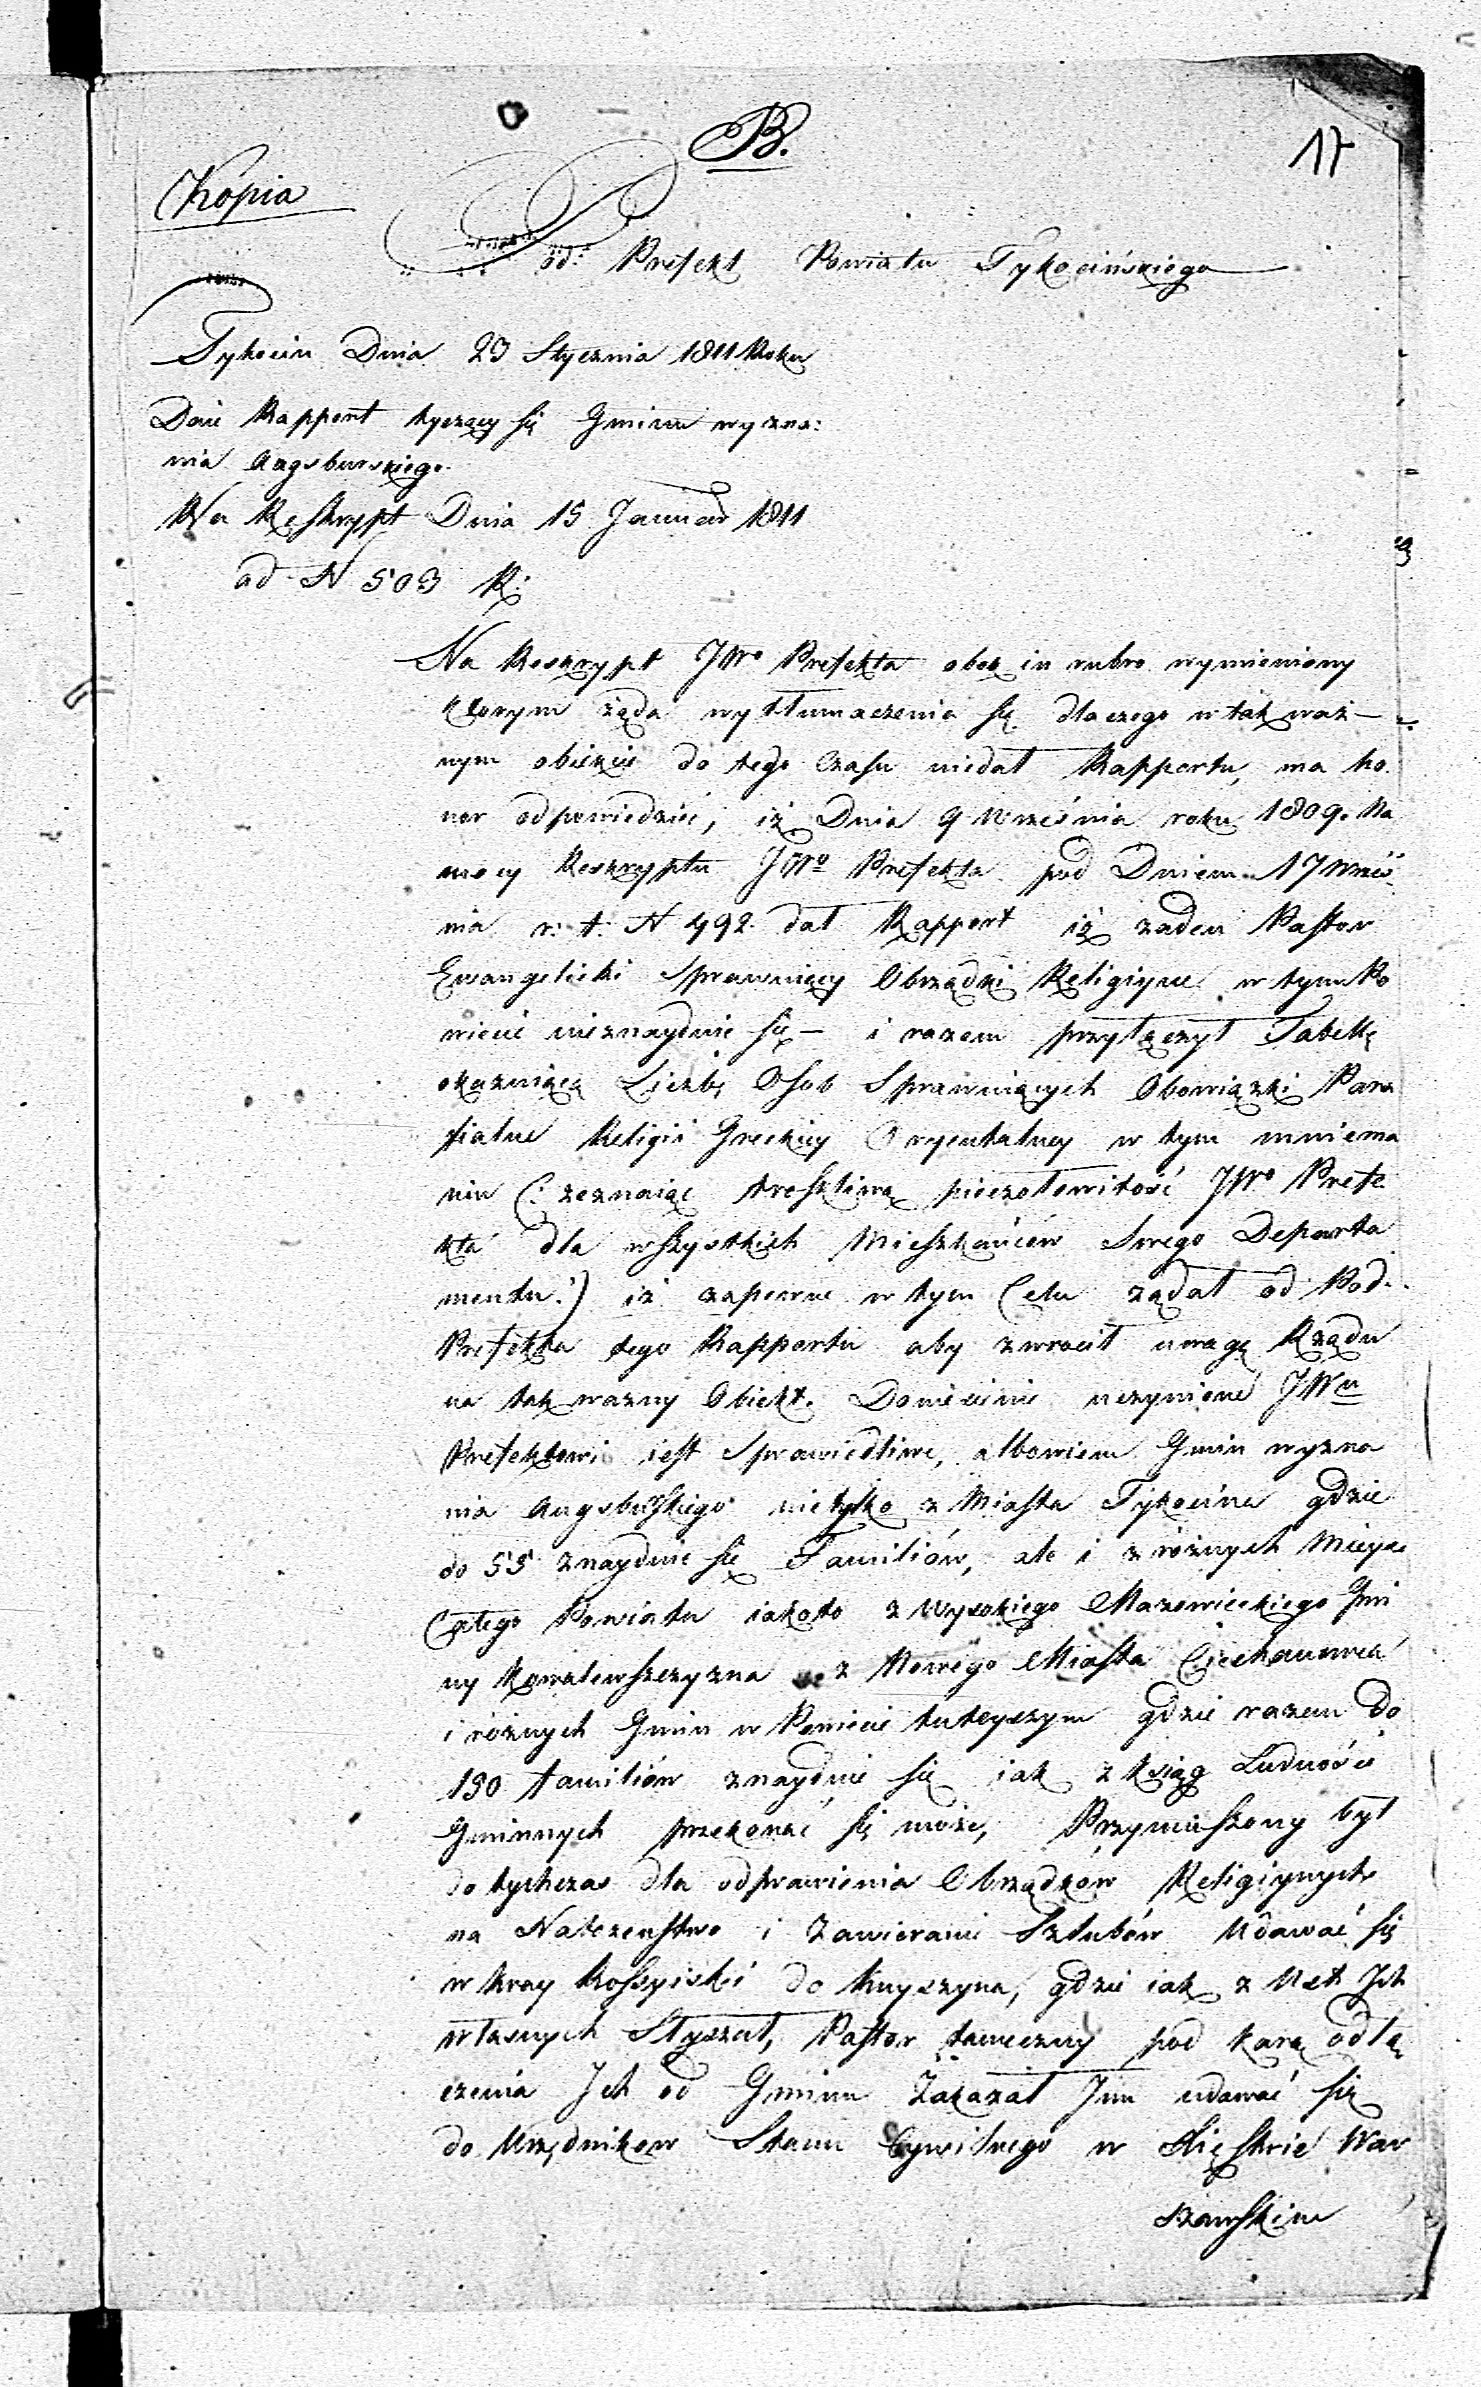 B.
17
Kopia
Pod: Prefekt Powiatu Tykocińskiego
Tykocin Dnia 23 Stycznia 1811 Roku
Daie Rapport tyczący się Gminu wyzna:
nia Augsburskiego.
Na Reskrypt Dnia 15 Januar 1811
ad N 503 R.
Na Reskrypt JWo Prefekta obok in rubro wymieniony
którym żąda wytłumaczenia się dlaczego w tak waż-
nym obiekcie do tego czasu niedał Rapportu, ma ho
nor odpowiedzieć, iż Dnia 9 Września roku 1809. Na
mocy Reskryptu JWo Prefekta pod Dniem 17 Wrześ
nia r. t. N 492 dał Rapport iż żaden Pastor
Ewangelicki Sprawuiący Obrządki Religiyne w tym Po
wiecie nieznayduie się — i razem przyłączył Tabellę
okazuiącą Liczbę Osob Sprawuiących Obowiązki Para
fialne Religii Greckiey Oryentalney w tym mniema
niu (: zeznaiąc troskliwą pieczołowitość JWo Prefe
kta dla wszystkich Mieszkańców Swego Departa
mentu:) iż zapewne w tym Celu żądał od Pod.
Prefekta tego Rapportu aby zwrocił uwagę Rządu
na tak ważny Obiekt. Doniesienie uczynione JWu
Prefektowi iest Sprawiedliwe, albowiem Gmin wyzna
nia Augsburskiego nietylko z Miasta Tykocina gdzie
do 55 znayduie się Familiów, ale i z różnych Mieysc
Całego Powiatu iakoto z Wysokiego Mazowieckiego Gmi
ny Kowalewszczyzna z Nowego Miasta Ciechanowca
i różnych Gmin w Powiecie tuteyszym gdzie razem do
130 familiów znayduie się iak z Ksiąg Ludności
Gminnych przekonać się może, Przymuszony był
do tychczas dla odprawienia Obrządków Religiynych
na Nabożeństwo i Zawieranie Szlubów Udawać się
w kray Rossyiski do Knyszyna, gdzie iak z Ust Jch
własnych Słyszał, Pastor tameczny pod karą odłą
czenia Jch od Gminu Zakazał Jm udawać się
do Urzędnikow Stanu Cywilnego w Xięstwie War
szawskim